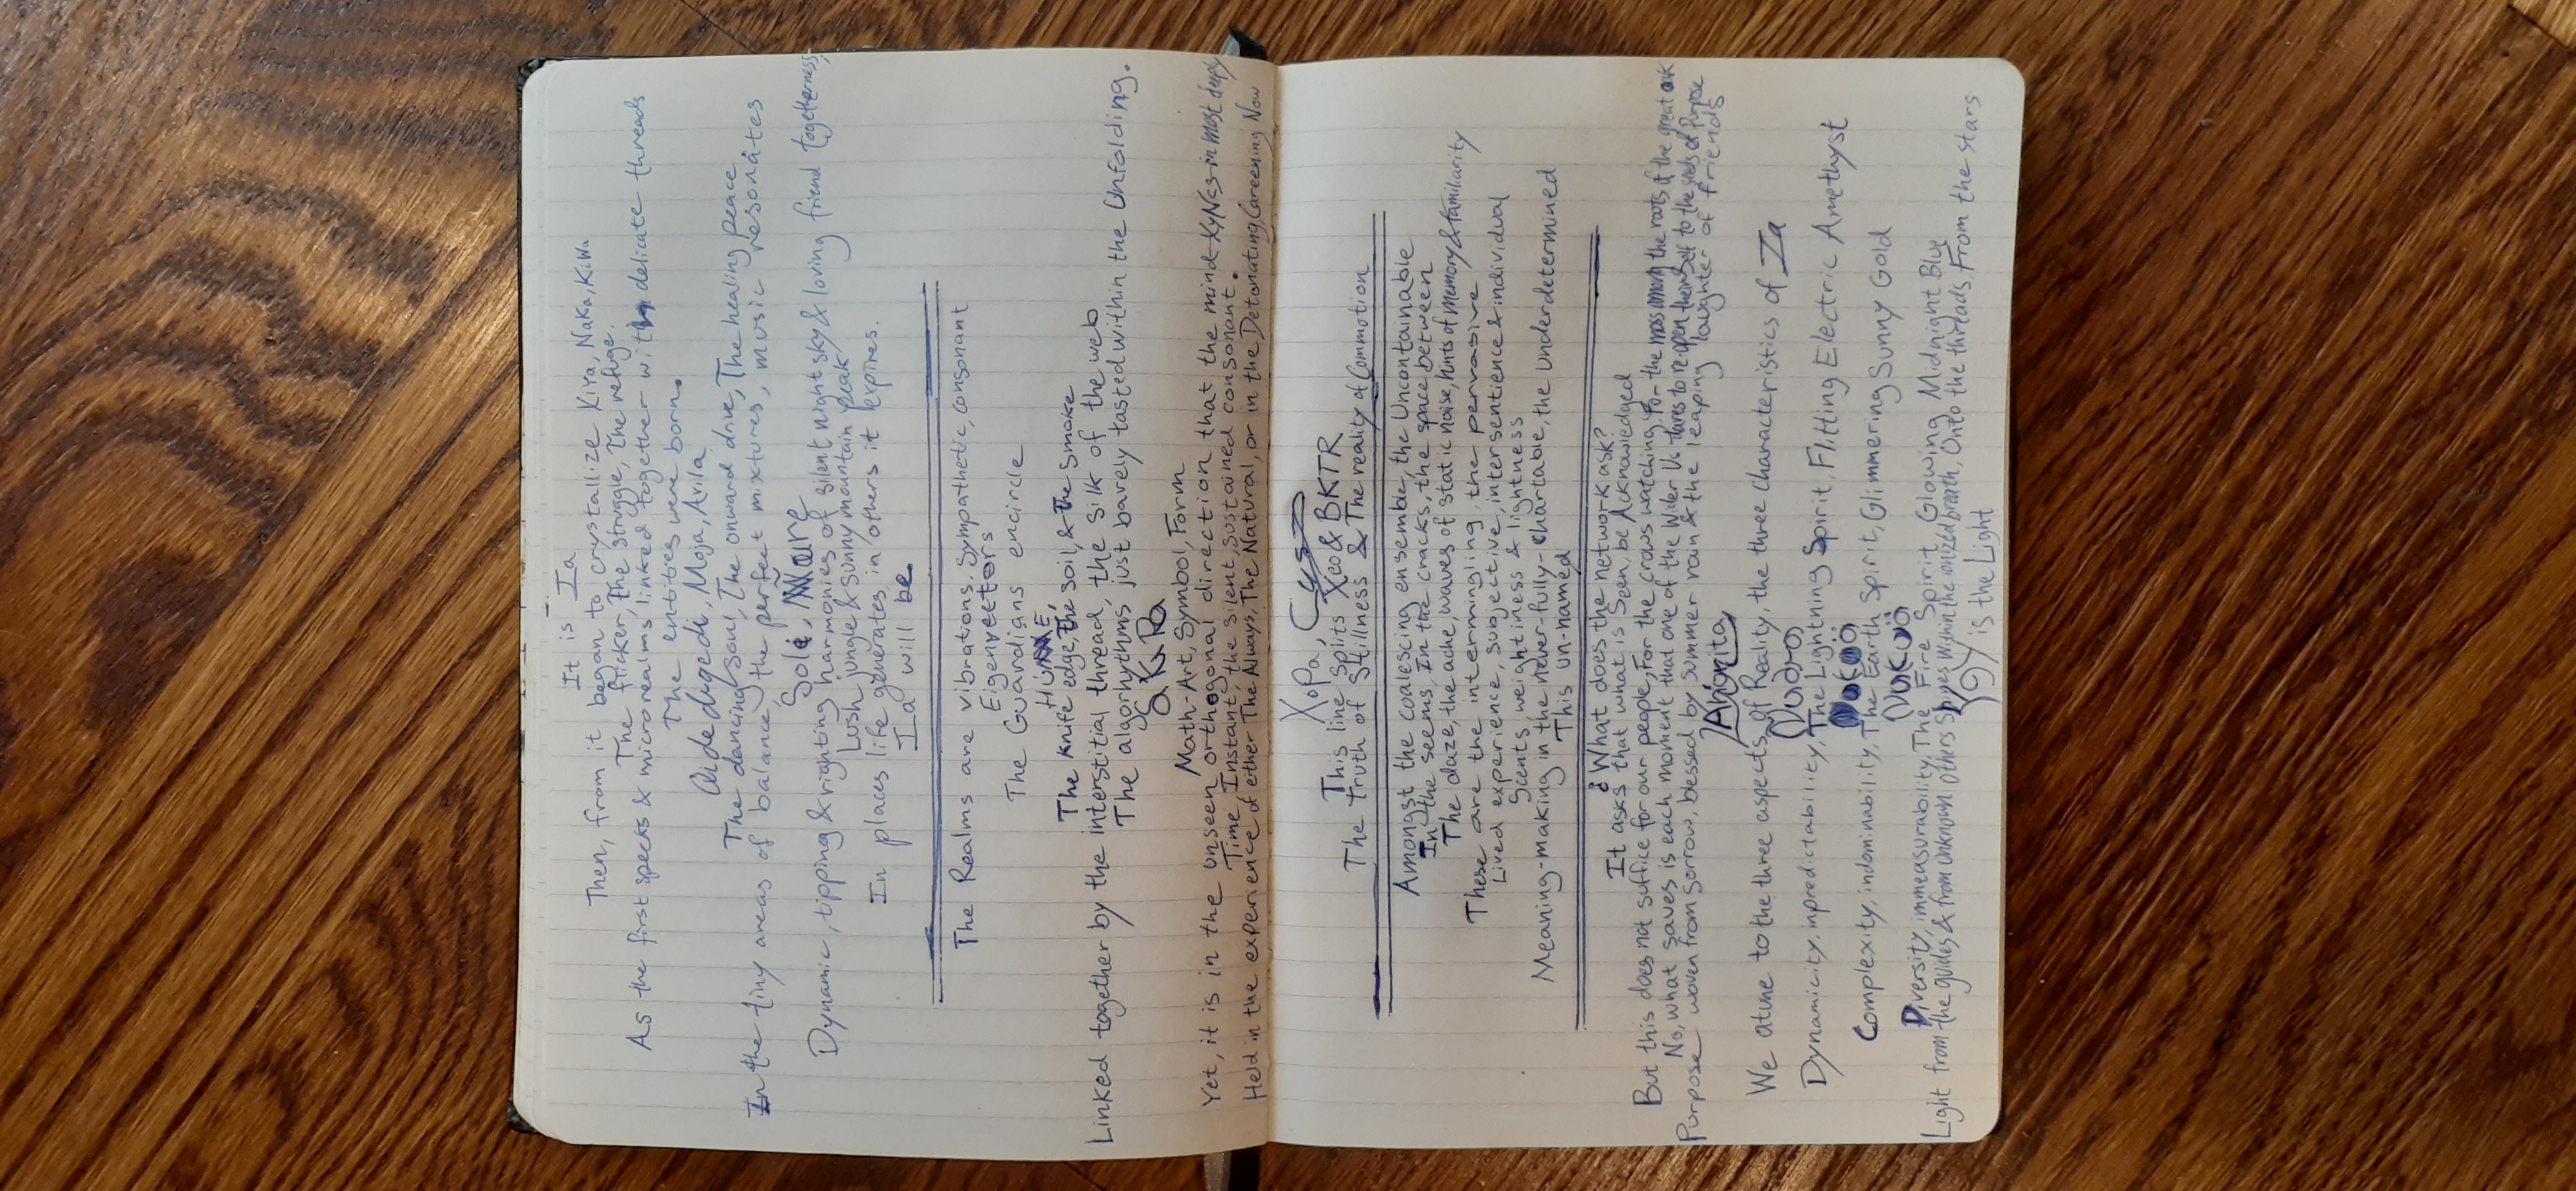 It is Ia
Then, from it began to crystallize XiYa, NaKa, KiWa
The flicker, The struggle, The refuge.
As the first specks & microrealms linked together with delicate threads
The entities were born.
Moja, Avila
The dancing Soul, The onward drive, The healing peace.
In the tiny areas of balance, the perfect mixtures, music resonates
Dynamic, tipping & righting harmonies of silent night sky & loving friend togetherness,
Lush jungle & sunny mountain peak
In places life generates, in others it expires.
Ia will be.
The Realms are vibrations. Sympathetic, consonant
Eigenvectors
The Guardians encircle
The Knife edge, The Soil, & The Smoke
Linked together by the interstitial thread, the silk of the web
The algorhythms just barely tasted within the Unfolding.
Math-Art, Symbol, Form
Yet, it is in the unseen orthogonal direction that the mind in most deeply
Time, Instant, the silent, sustained consonant.
Held in the experience of either The Always, The Natural, or in the Detonating, Careening Now
XoPa,
This line splits Xeo & BKTR
The Truth of Stillness & The reality of Commotion
Amongst the coalescing ensemble, the Uncontainable
In the seems, In the cracks, the space between
The daze, the ache, waves of static noise, hints of memory & familiarity
These are the intermingling, the pervasive
Lived experience, subjective, intersentience & individual
Scents, weightiness & lightness
Meaning-making in the never-fully-chartable, the underdetermined
This un-named
¿What does the network ask?
It asks that what is Seen, be Acknowledged
But this does not suffice for our people, For the crows watching, For the moss among the roots of the great oak
No, what saves is each moment that one of the Wider Us dares to re-open theirself to the seeds of Purpose
Purpose woven from sorrow, blessed by summer rain & the leaping laughter of friends
We atune to the three aspects of Reality, the three characteristics of Ia
Dynamicity, inpredictability, The Lightning Spirit, Flitting Electric Amethyst
Complexity, indominability, The Earth Spirit, Glimmering Sunny Gold
Diversity, immeasurability, The Fire Spirit, Glowing Midnight Blue
Light from the guides & from unknown others Shines within the ionized breath, Onto the threads, From the stars
is the Light